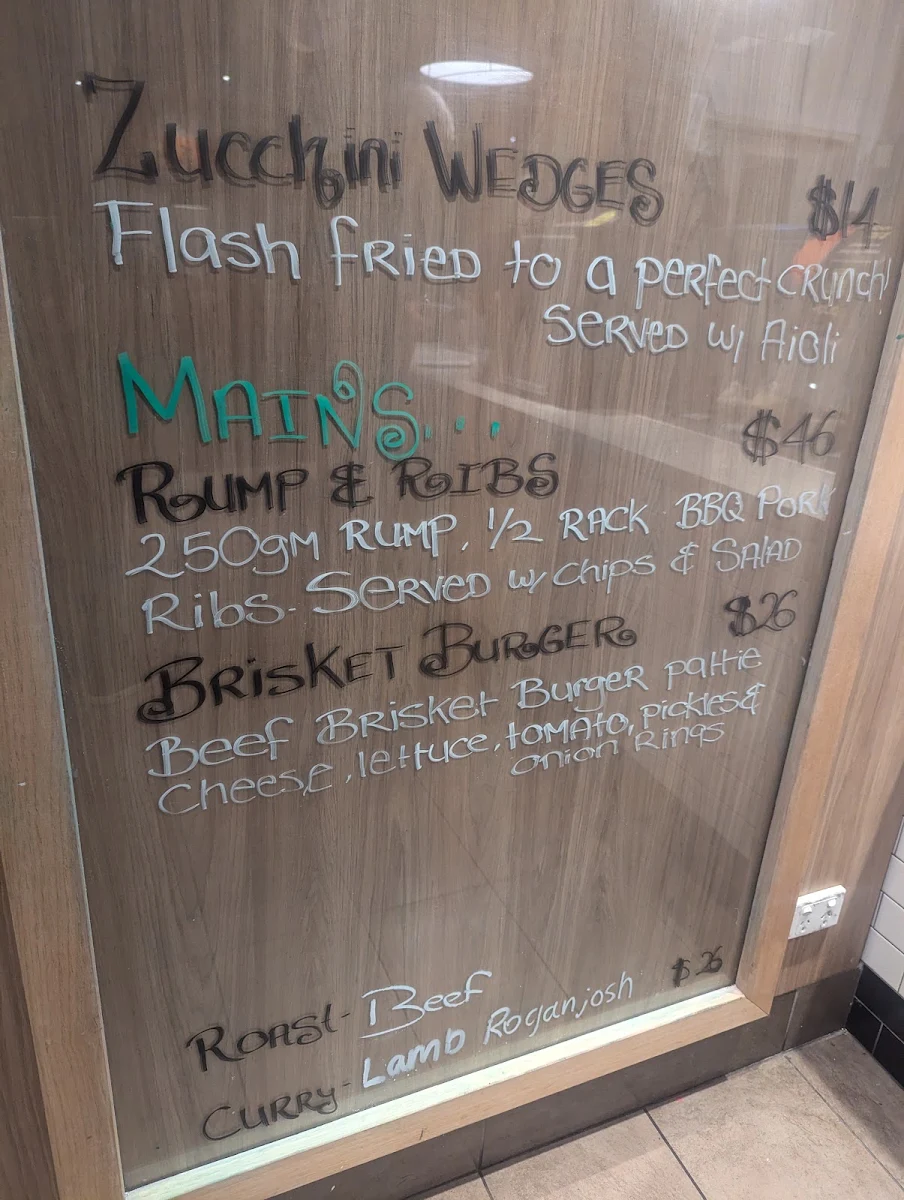 Zucchini WEDGES $14
Flash fried to a perfect crunch!
Served w/ Aioli
MAINS...
$46
RUMP & RIBS
250gm RUMP, 1/2 RACK BBQ Pork
Ribs. Served w/ chips & SALAD
BRISKET BURGER $26
Beef Brisket Burger pattie
Cheese, lettuce, tomato, pickles &
onion Rings
ROAST- Beef $26
CURRY- Lamb Roganjosh